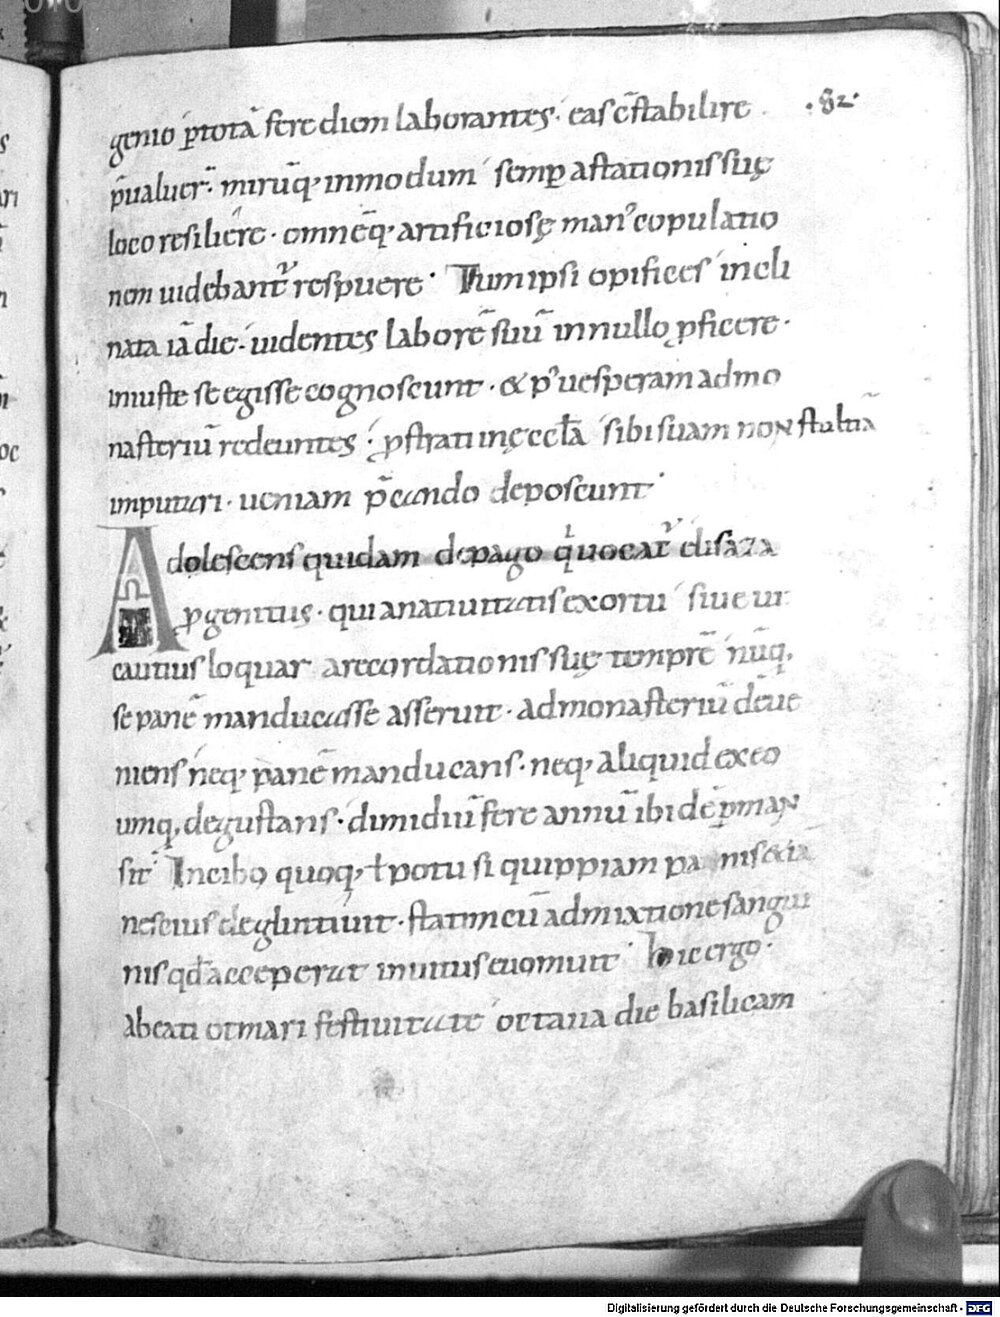 ·82·
genio ꝑtotā fere diem laborantes· eas cōstabilire
p̄ualuer̄· mirūq; inmodum semꝑ a stationis suę
loco resiliere· omnēq; artificiosę man᾿ copulatio
nem uidebant᷑ respuere· Tum ipsi opifices incli
nata iā die· uidentes laborē suū in nullo ꝓficere·
iniuste se egisse cognoscunt· & p᾿ uesperam ad mo
nasteriū redeuntes· ꝓstrati in ęcclā sibi suam non stultā
imputari· ueniam p̄cando deposcunt·
Adolescens quidam de pago qͥ uocat᷑ elisaza
ꝓgenitus· qui a natiuitatis exortu siue ut
cautius loquar a recordationis suę temꝑe nūq;
se panē manducasse asseruit· ad monasteriū deue
niens neq; panē manducans· neq; aliquid ex eo
umq; degustans· dimidiū fere annū ibidē ꝑman
sit· In cibo quoq; ł potu si quippiam panis etiā
nescius deglutiuit· statim cū admixtione sangui
nis qd̄ acceperat inuitus euomuit· hic ergo·
abeati otmari festiuitate octaua die basilicam
Digitalisierung gefördert durch die Deutsche Forschungsgemeinschaft - DFG